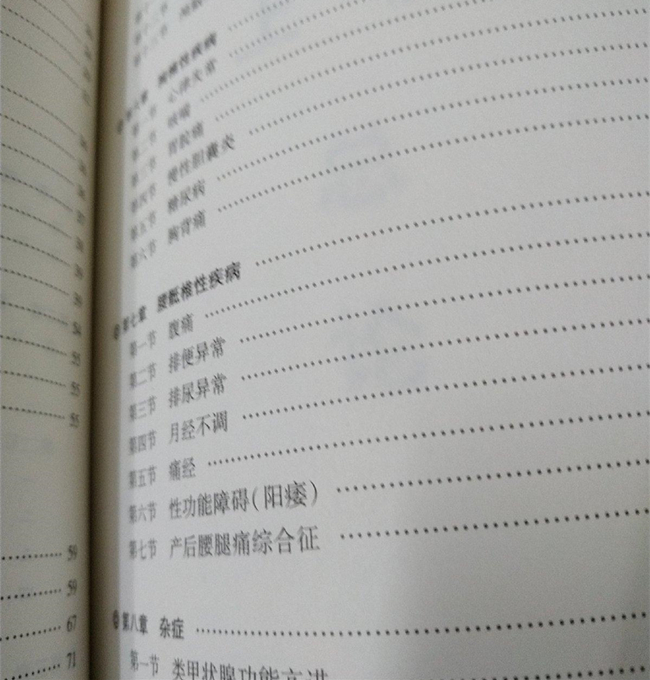 55
55
55
59
59
67
71
第六章 胸椎性疾病
第一节 心律失常
第二节 哮喘
第三节 胃脘痛
第四节 慢性胆囊炎
第五节 糖尿病
第六节 胸背痛
第七章 腰骶椎性疾病
第一节 腹痛
第二节 排便异常
第三节 排尿异常
第四节 月经不调
第五节 痛经
第六节 性功能障碍(阳痿)
第七节 产后腰腿痛综合征
第八章 杂症
第一节 类甲状腺功能亢进